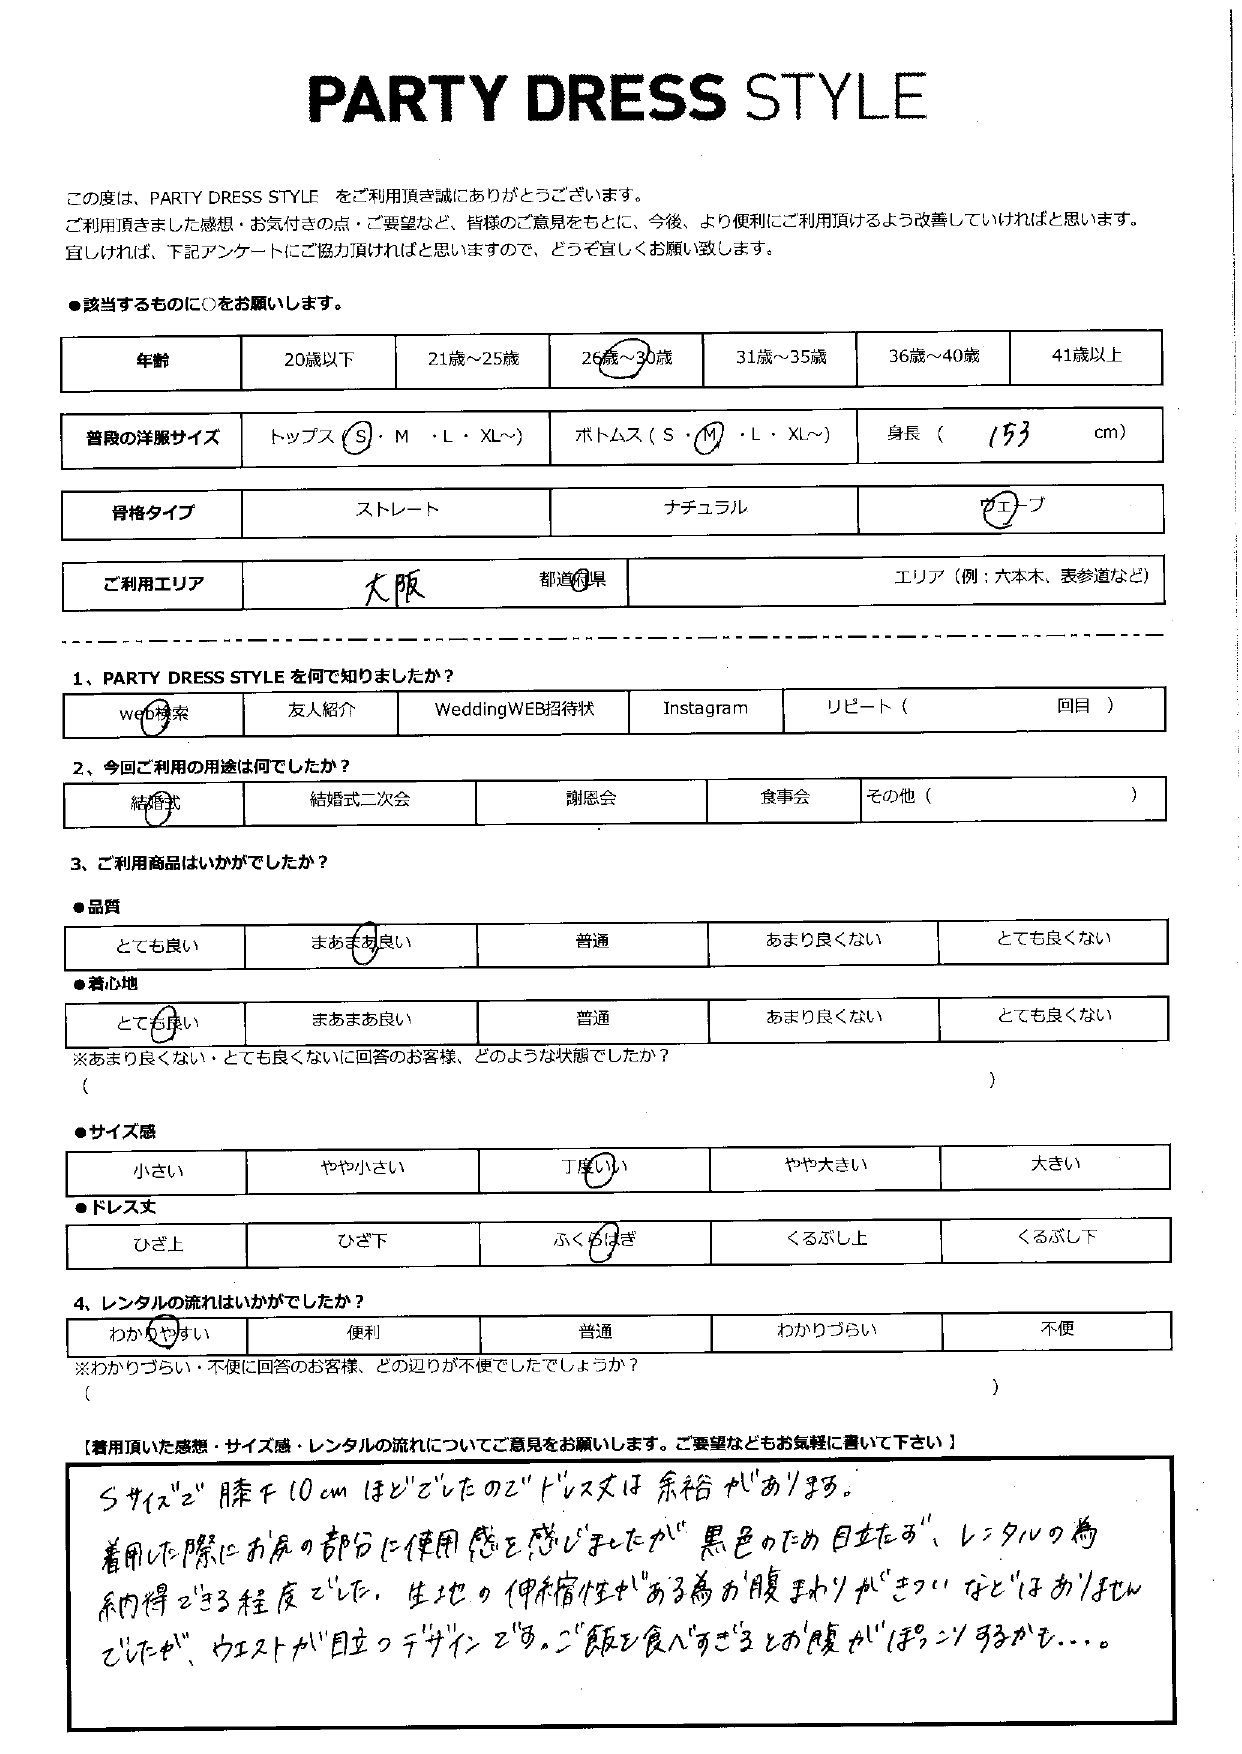 PARTY DRESS STYLE
この度は、PARTY DRESS STYLE　をご利用頂き誠にありがとうございます。
ご利用頂きました感想・お気付きの点・ご要望など、皆様のご意見をもとに、今後、より便利にご利用頂けるよう改善していければと思います。
宜しければ、下記アンケートにご協力頂ければと思いますので、どうぞ宜しくお願い致します。
●該当するものに○をお願いします。
年齢 20歳以下 21歳～25歳 26歳～30歳 31歳～35歳 36歳～40歳 41歳以上
普段の洋服サイズ トップス（S・M ・L・XL～) ボトムス（S・M ・L・XL～) 身長（ 153 cm）
骨格タイプ ストレート ナチュラル ウェーブ
ご利用エリア 大阪 都道府県 エリア（例：六本木、表参道など）
1、PARTY DRESS STYLE を何で知りましたか？
web検索 友人紹介 WeddingWEB招待状 Instagram リピート（ 回目 ）
2、今回ご利用の用途は何でしたか？
結婚式 結婚式二次会 謝恩会 食事会 その他（ ）
3、ご利用商品はいかがでしたか？
●品質
とても良い まあまあ良い 普通 あまり良くない とても良くない
●着心地
とても良い まあまあ良い 普通 あまり良くない とても良くない
※あまり良くない・とても良くないに回答のお客様、どのような状態でしたか？
（ ）
●サイズ感
小さい やや小さい 丁度いい やや大きい 大きい
●ドレス丈
ひざ上 ひざ下 ふくらはぎ くるぶし上 くるぶし下
4、レンタルの流れはいかがでしたか？
わかりやすい 便利 普通 わかりづらい 不便
※わかりづらい・不便に回答のお客様、どの辺りが不便でしたでしょうか？
（ ）
【着用頂いた感想・サイズ感・レンタルの流れについてご意見をお願いします。ご要望などもお気軽に書いて下さい】
Sサイズで 膝下10cm ほどでしたのでドレス丈は 余裕があります。
着用した際にお尻の部分に使用感を感じましたが 黒色のため目立たず、レンタルの為
納得できる程度でした. 生地の伸縮性がある為お腹まわりがきついなどはありません
でしたが、ウエストが目立つデザインです。ご飯を食べすぎるとお腹がぽっこりするかも...。